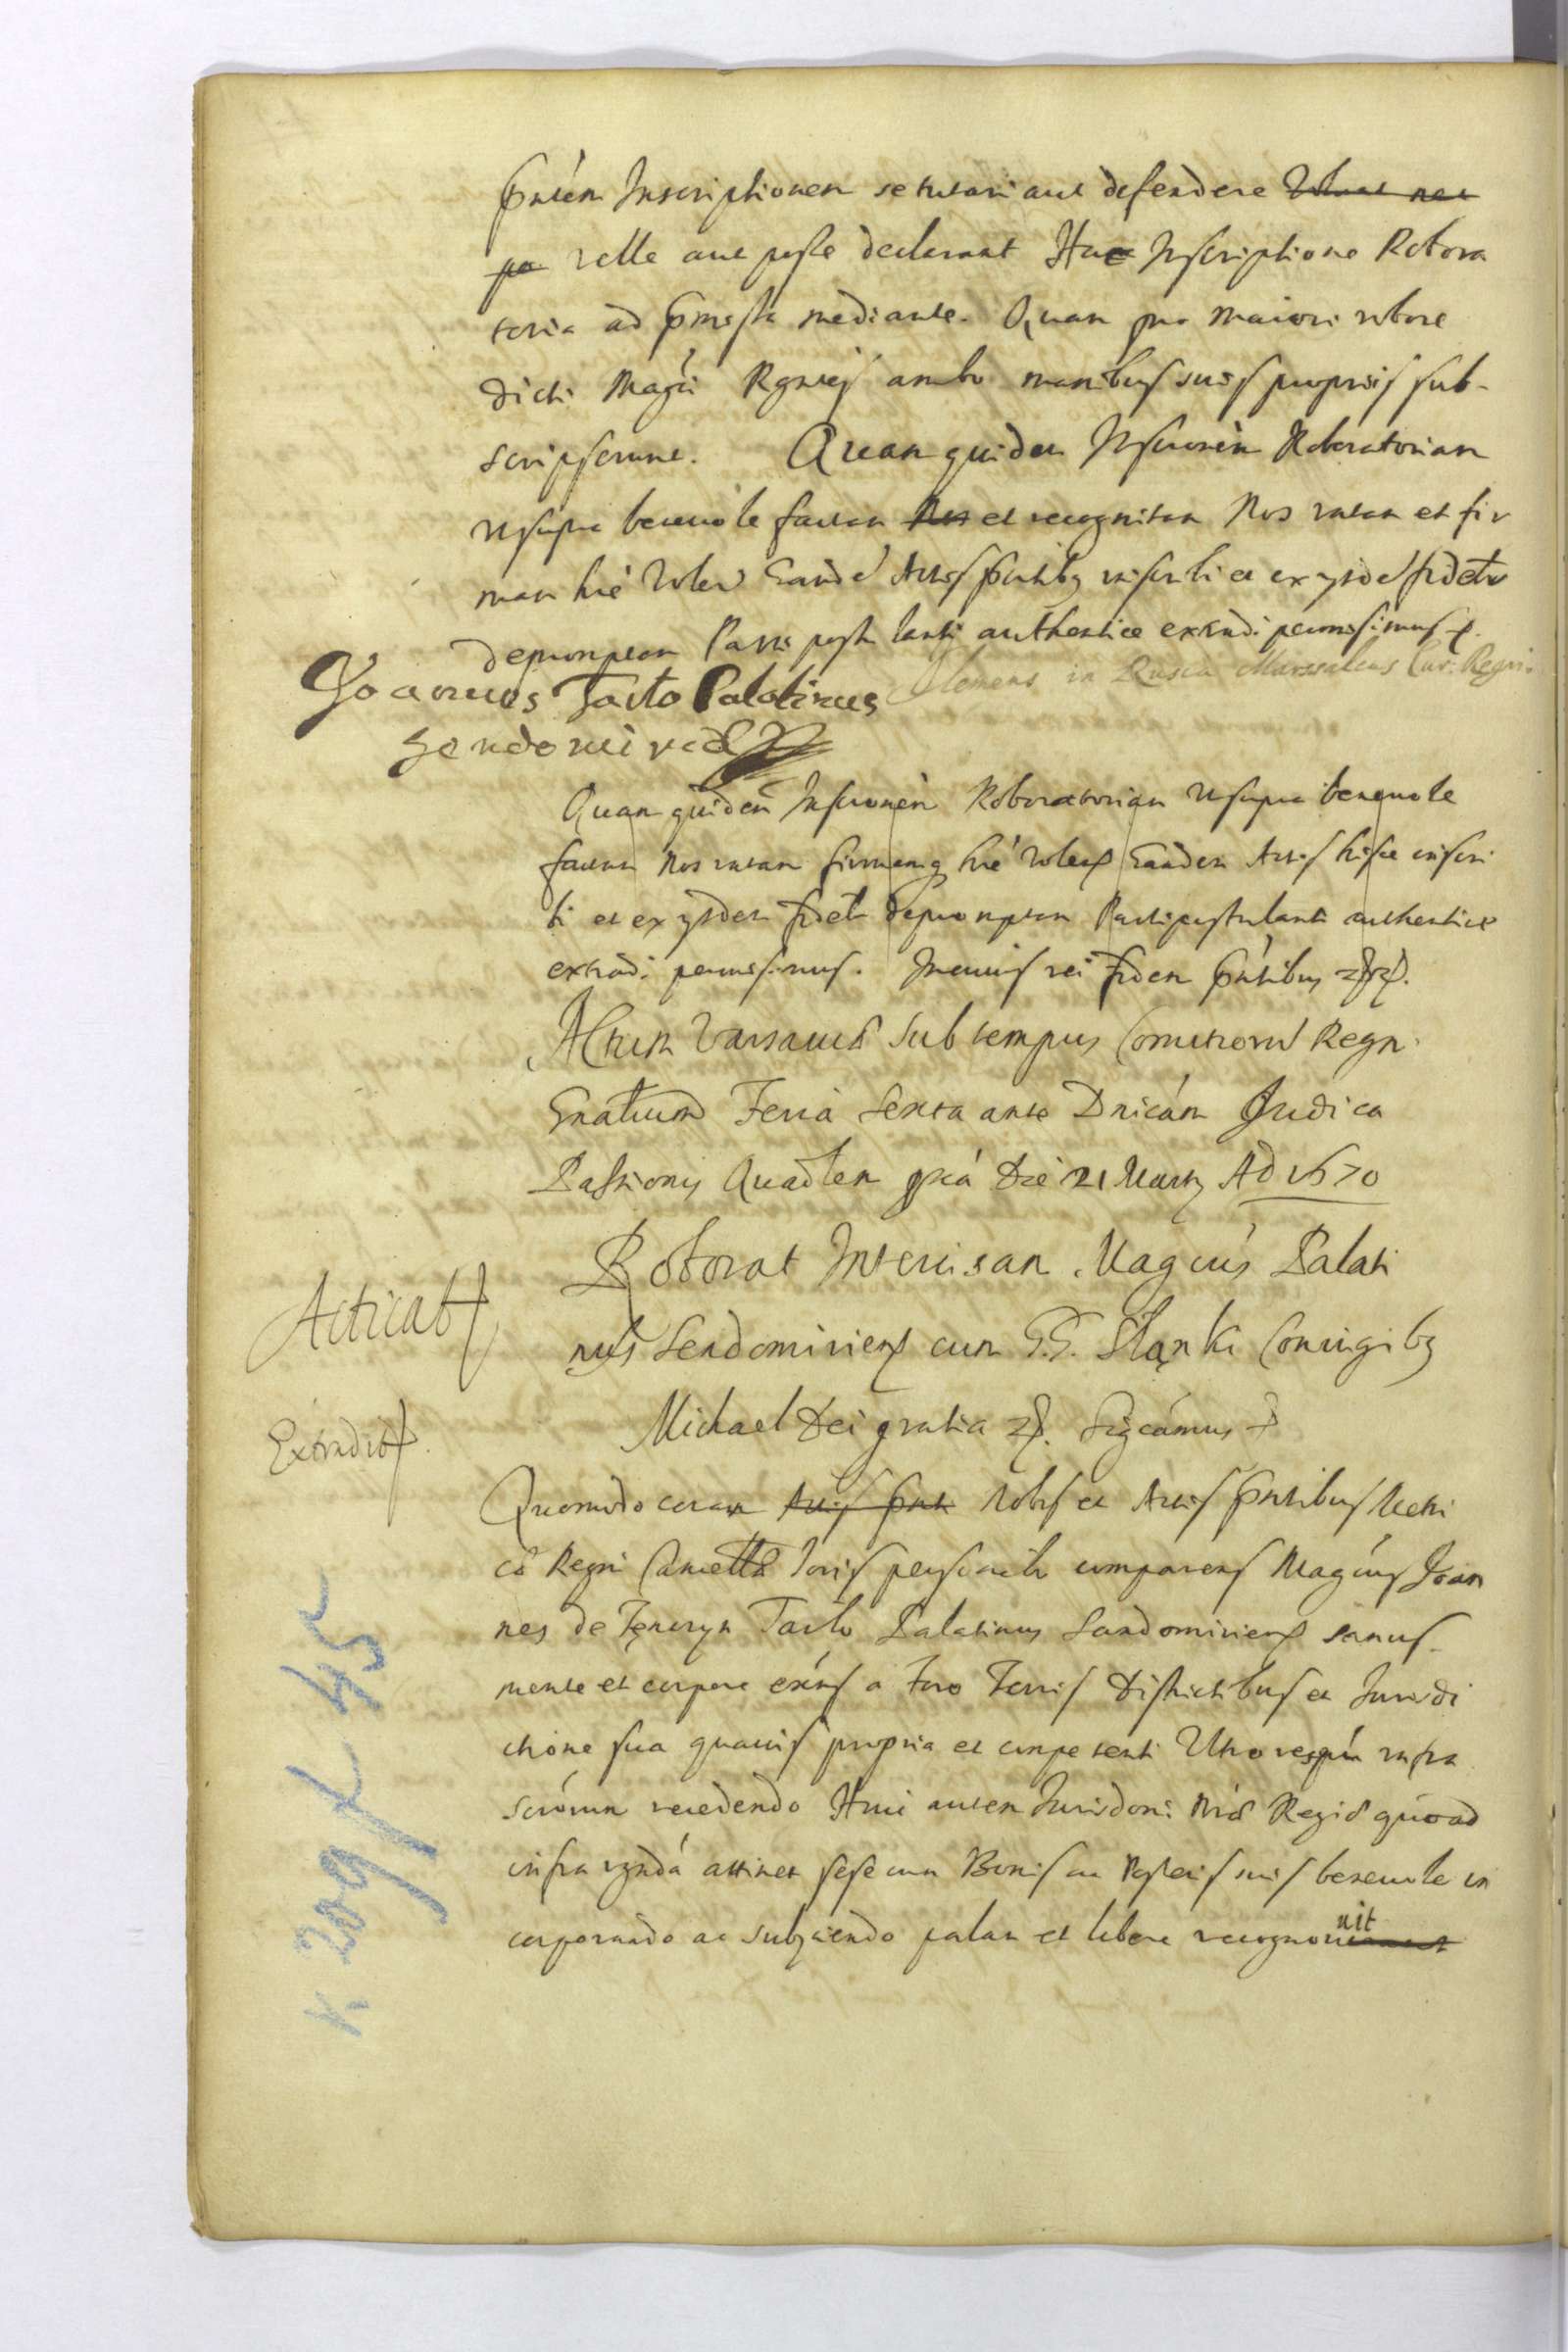 pntem Inscriptionem se tutari aut defendere
velle aut posse declarant Hac Inscriptione Robora
toria ad pmissa mediante. Quam pro maiori robore
dicti Magci Rgntes ambo manibus suis propriis sub-
scripserunt. Quam quidem Inscrionem Roboratoriam
ut supra beneuole factam et recognitam Nos ratam et fir
mam hrè volen Eande Actis pntibg inscribi et ex ysde fidetr
depromptam Parti postulanti authentice extradi permisimus
Joannes Tarlo Palatinus
Sendomirien
Clemens in Rusca Marssalcus Cur: Regni
Quam quidem Inscrionem Roboratoriam ut supra beneuole
factam Nos ratam firmamq hrè volens Eandem Actis hisce inscri
bi et ex ysdem fidetr depromptam Parti postulanti authentice
extradi permisimus. In cuius rei fidem pntibus
Actum Varsauiæ sub tempus Comitiorum Regn
Gnalium Feria sexta ante Dnicam Judica
Passionis Quadlem pxia Die 21 Marty Ad 1670
Roborat Intercisam Magcus Palati
nus Sendomiriens cum G.G. Słapki Coniugibg
Acticat
Michael Dei gratia Sigcamus
Extradit
Quomodo coram Actis pnti Nobis et Actis pntibus Metri
cæ Regni Cancellæ Loris personalr comparens Magcus Joan
nes de Tęczyn Tarlo Palatinus Sandomiriens sanus
mente et corpore exns a Foro Terris Districtibus et Jurisdi
ctione sua quauis propria et competenti Utro respu infra
scrorum recedendo Huic autem Jurisdoni Nræ Regiæ quoad
infra attinet sese cum Bonis ac Posteris suis beneuole in
corporando ac subyciendo palam et libere recognouit
K 209 f 45